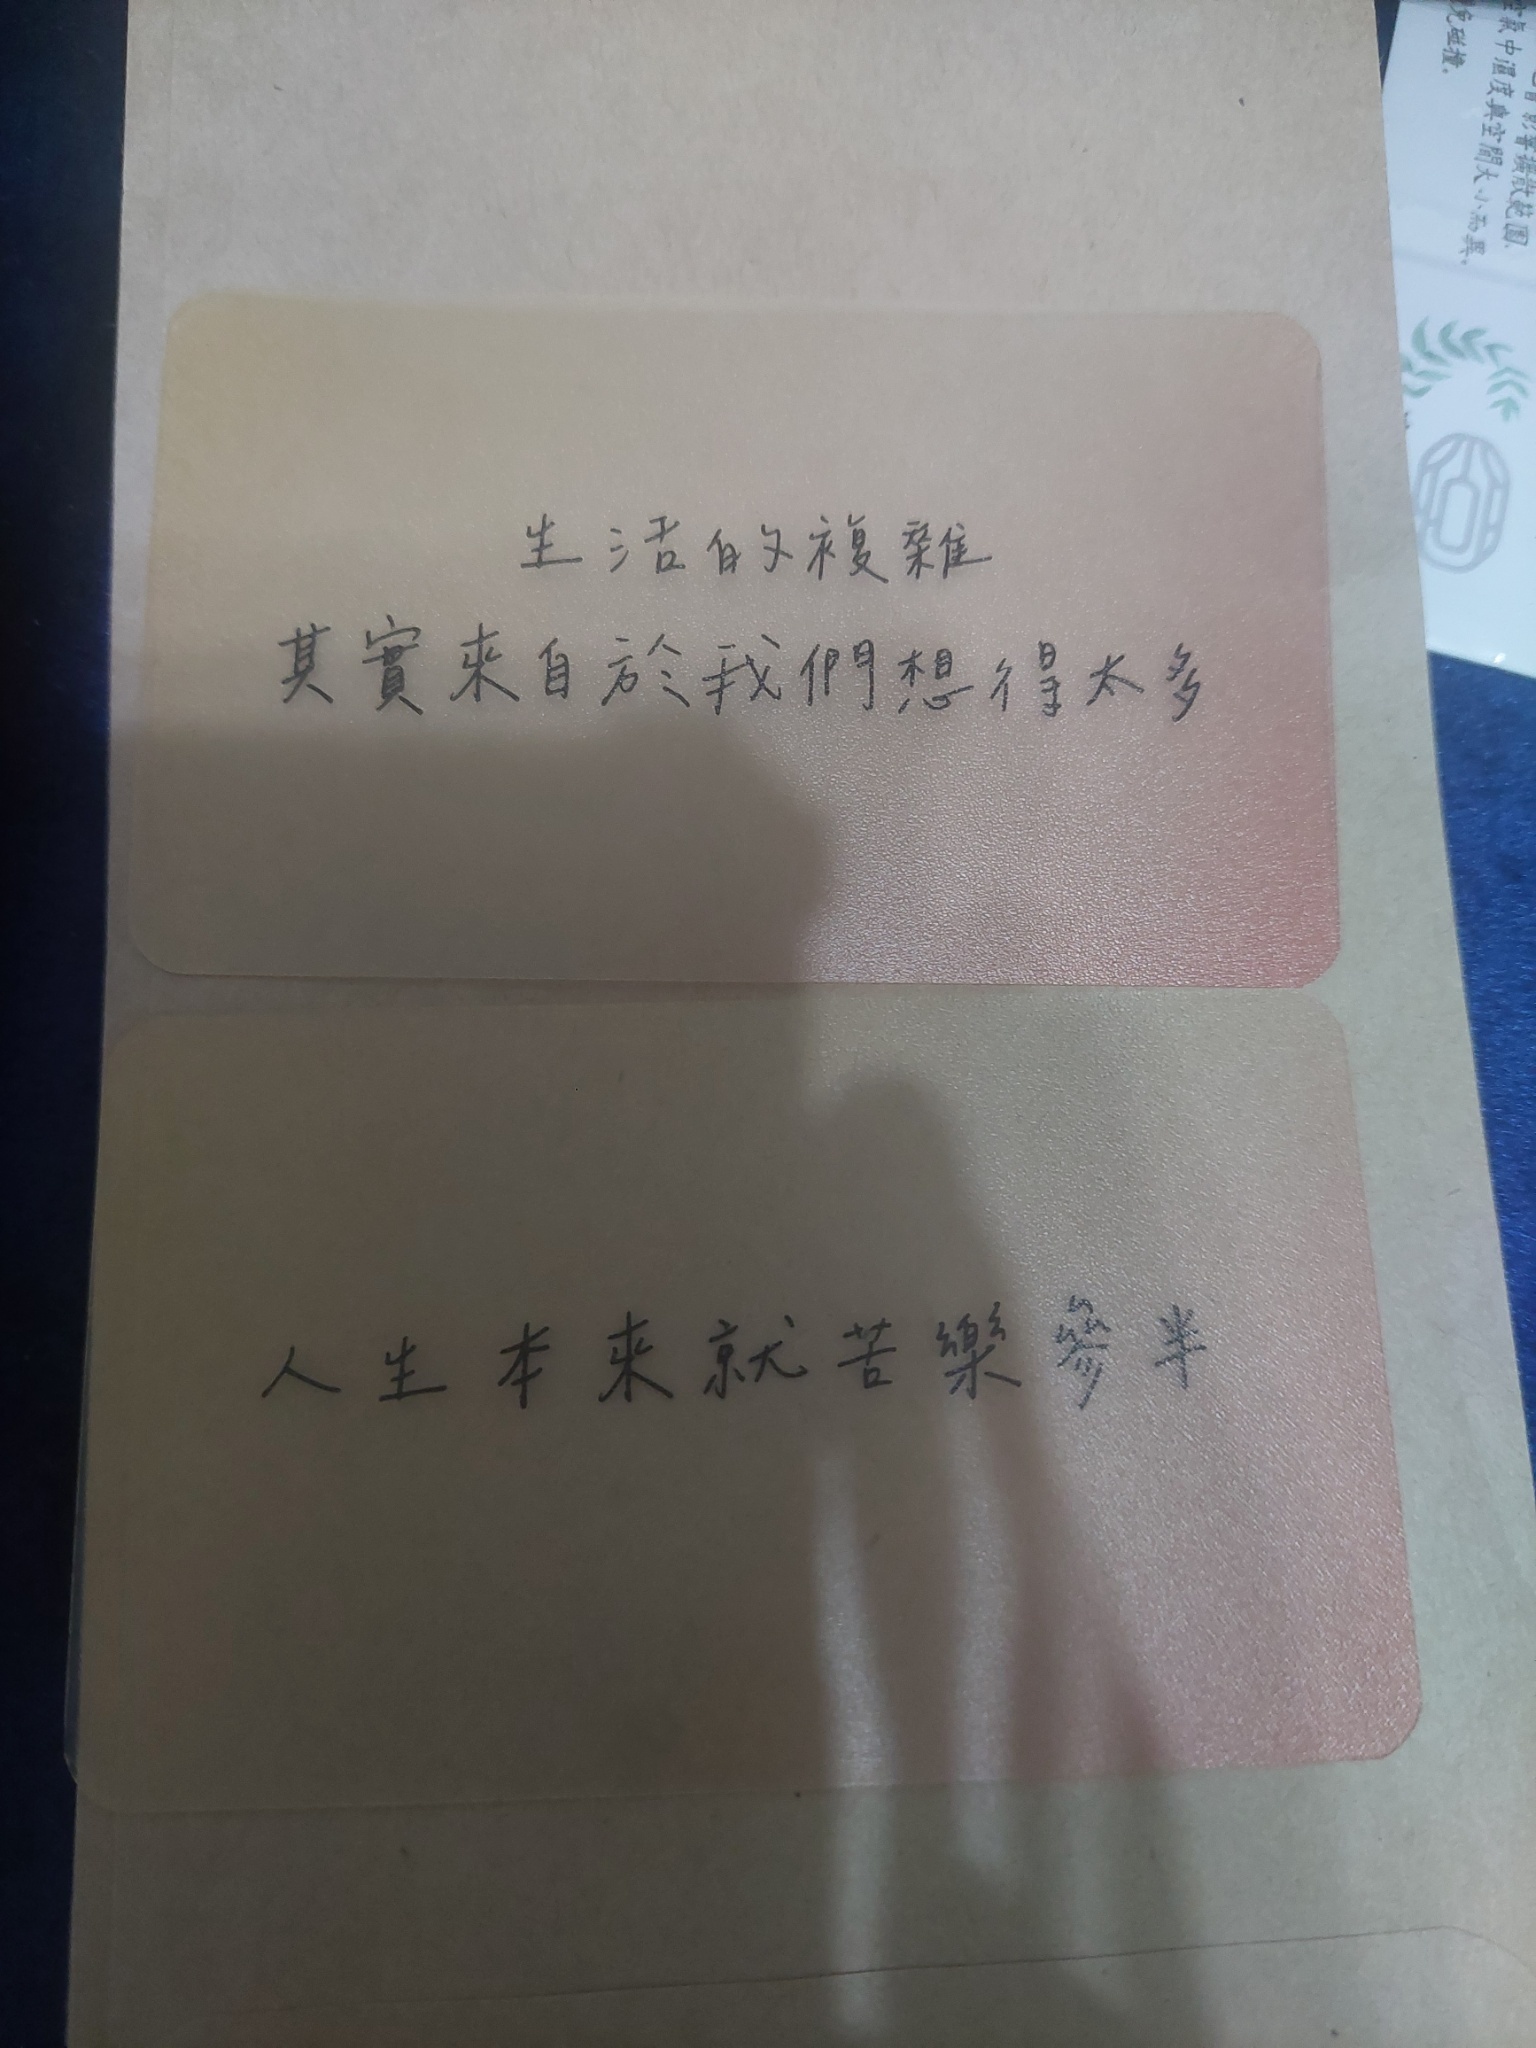 生活的複雜
其實來自於我們想得太多
人生本來就苦樂參半
空氣中溫度與空間大小而異。
免碰撞。